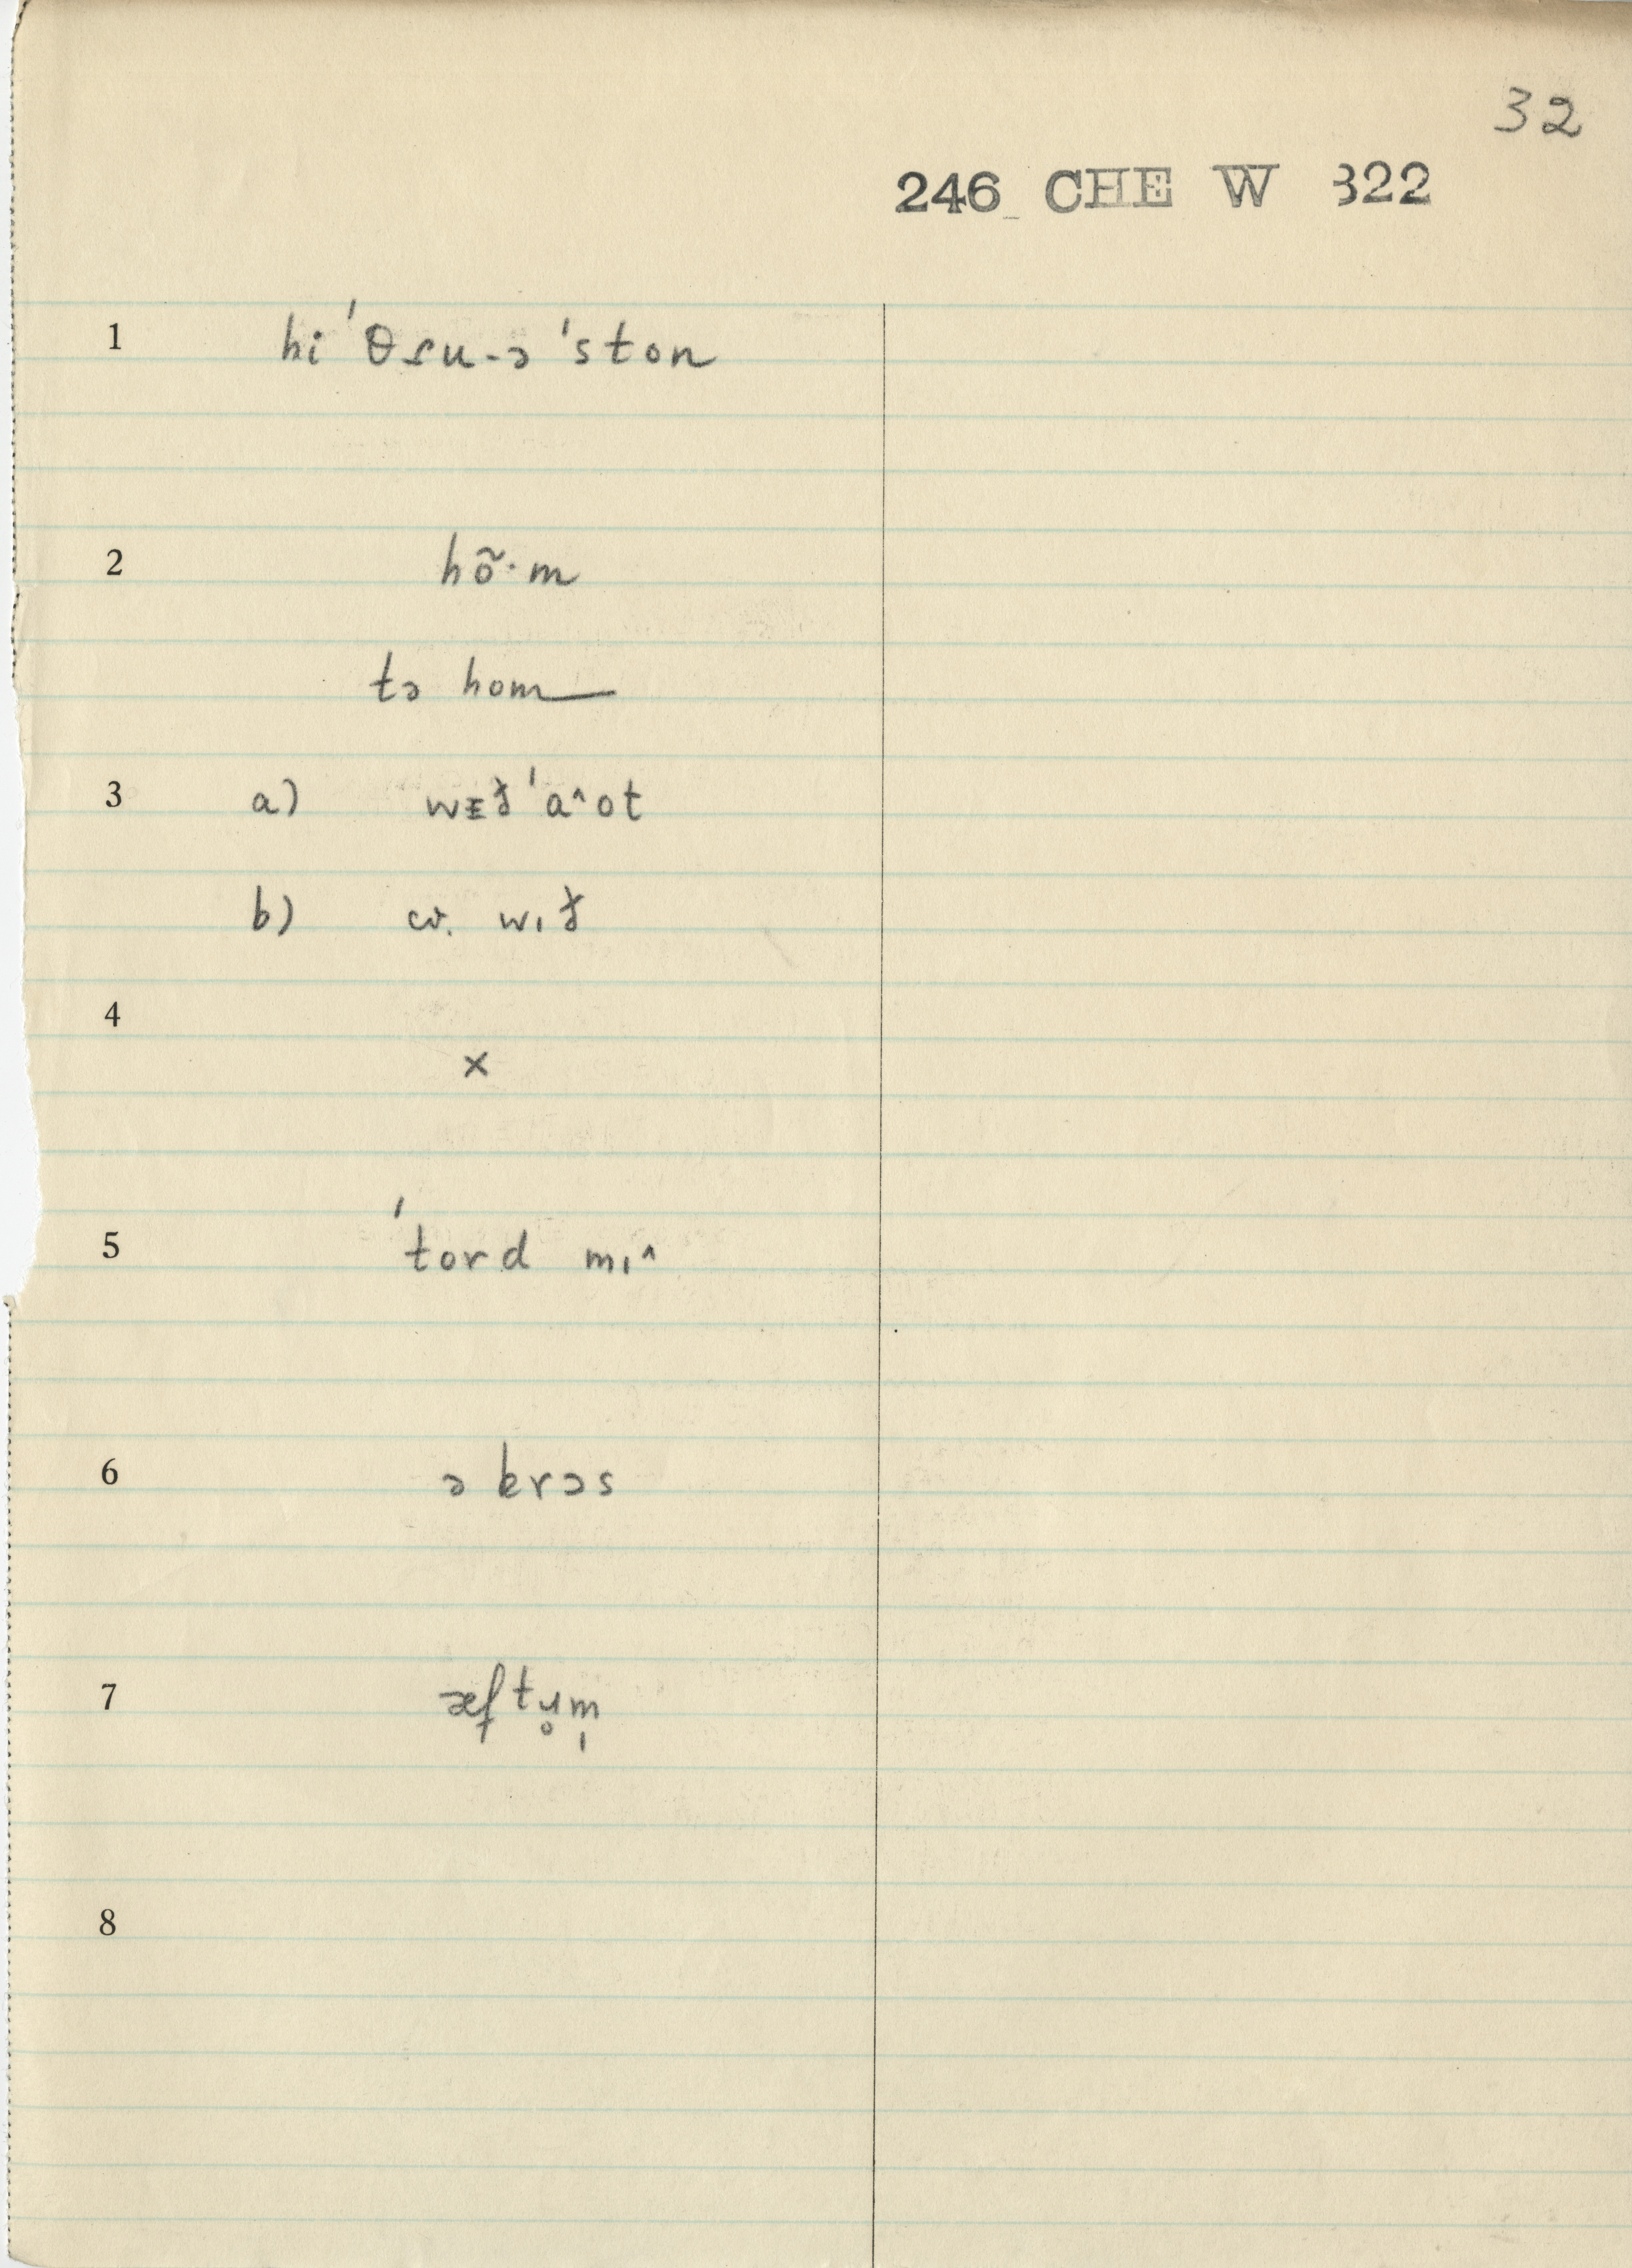 32
246 CHE W 322
1 hi ˈθɾu-ə ˈston
2 hõ·m
tə hom
3 a) wɪð ˈaˆot
b) cv. wɪð
4 ×
5 ˈtord mɪˆ
6 ə krəs
7
8